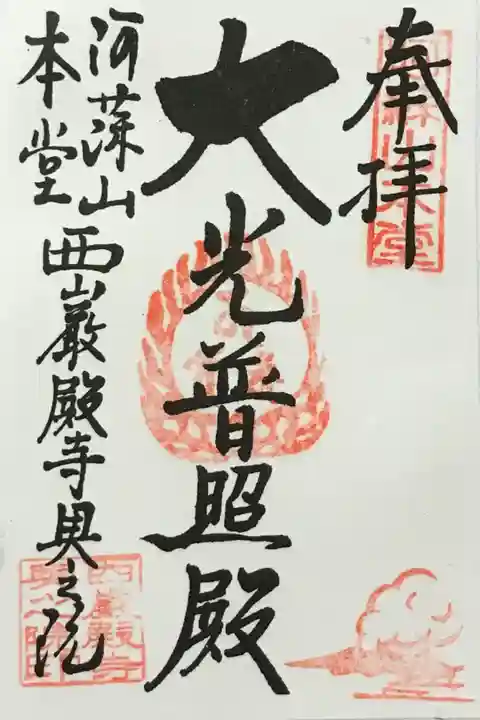 奉拝
大光普照殿
阿蘇山
本堂
西巌殿寺奥之院